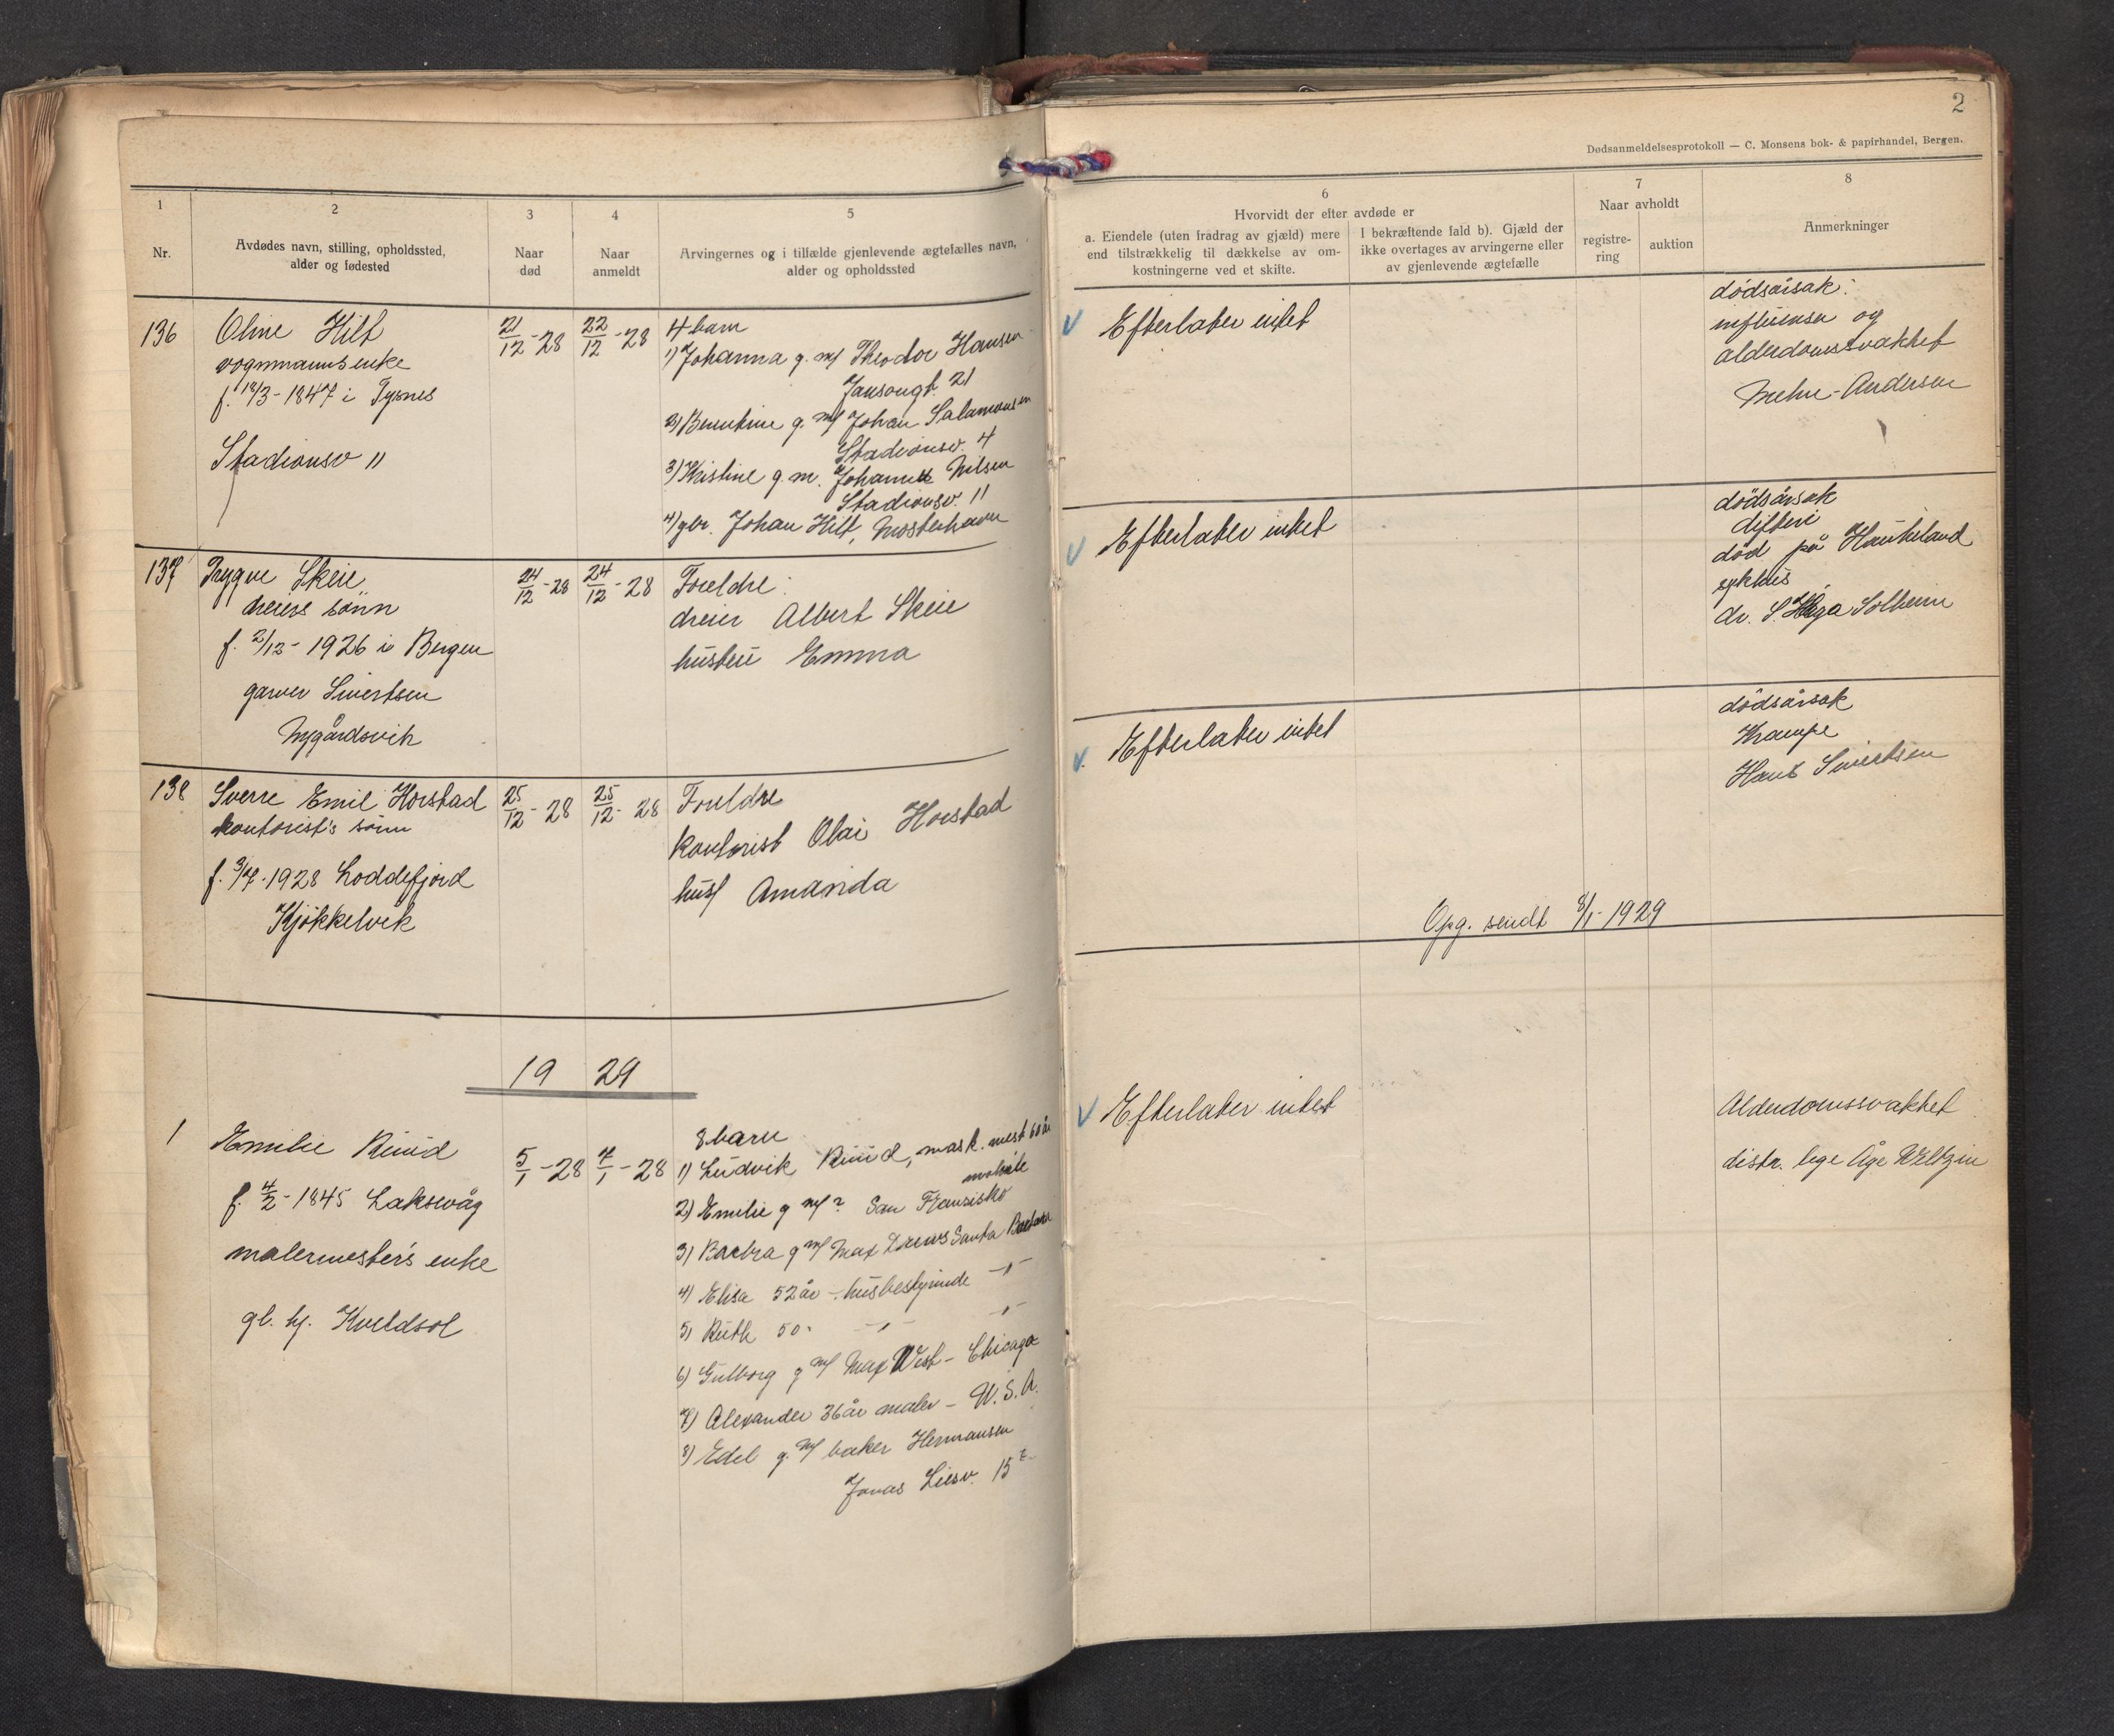 2
Dødsanmeldelsesprotokoll — C. Monsens bok- & papirhandel, Bergen.
1
Nr.
2
Avdødes navn, stilling, opholdssted,
alder og fødested
3
Naar
død
4
Naar
anmeldt
5
Arvingernes og i tilfælde gjenlevende ægtefælles navn,
alder og opholdssted
6
Hvorvidt der efter avdøde er
a. Eiendele (uten fradrag av gjæld) mere
end tilstrækkelig til dækkelse av om-
kostningerne ved et skifte.
I bekræftende fald b). Gjæld der
ikke overtages av arvingerne eller
av gjenlevende ægtefælle
7
Naar avholdt
registre-
ring
auktion
8
Anmerkninger
136
Oline Hilt
vognmannsenke
f. 18/3-1847 i Tysnes
Stadionsv 11
21/12-28
22/12-28
4 barn
1) Johanna g. m/ Theodor Hansen
Jansongt. 21
2) Berentine g. m/ Johan Salamonsen
Stadionsv. 4
3) Kristine g. m. Johannes Nilsen
Stadionsv. 11
4) gbr. Johan Hilt, Mosterhavn
Efterlater intet
dödsårsak:
influensa og
alderdomssvakhet
Mehn-Andersen
137
Trygve Skeie
dreiers sönn
f. 2/12-1926 i Bergen
garver Sivertsen
Nygårdsvik
24/12-28
24/12-28
Foreldre:
dreier Albert Skeie
hustru Emma
Efterlater intet
dödsårsak
difteri
död på Haukeland
sykhus
dr. S. Solheim
138
Sverre Emil Horstad
kontorist's sönn
f. 3/7-1928 Loddefjord
Kjökkelvik
25/12-28
25/12-28
Foreldre
kontorist Olai Horstad
hus/ Amanda
Efterlater intet
dödsårsak
Krampe
Hans Sivertsen
Opg. sendt 8/1-1929
19 29
1
Emilie Ruud
f. 4/2-1845 Laksevåg
malermester's enke
gl. hj. Kveldsol
5/1-28
7/1-28
8 barn
1) Ludvik Ruud, mask. mest 60 år
2) Emilie g m/ ? San Franzisko
3) Barbra g m/ Max Drews Santa Barbara
4) Elisa 52 år - husbestyrinde -"-
5) Ruth 50 " -"- -"-
6) Gulborg g m/ Max West - Chicago
7) Alexander 36 år maler - U.S.A.
8) Edel g. m/ baker Hermansen
Jonas Liesv. 15
Efterlater intet
Alderdomssvakhet
distr. lege Åge Weltzin